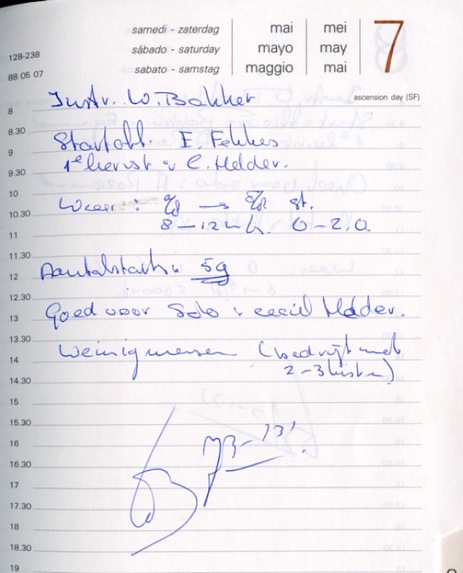 samedi - zaterdag mai mei 7
sábado - saturday mayo may
sabato - samstag maggio mai
128-238
88 05 07
ascension day (SF)
8 Instr. W. Bakker
8.30
9 Startoff. E. Fekkes
9.30 1e lierist : C. Helder.
10
10.30 Weer : → st.
11 8 – 12 0 – 2.0.
11.30
12 Aantal starts 59
12.30
13 Goed voor Solo : Cecil Helder.
13.30
14 Weinig mensen (bedrijf met
14.30 2 – 3 kisten)
15
15.30
16
16.30
17
17.30
18
18.30
19